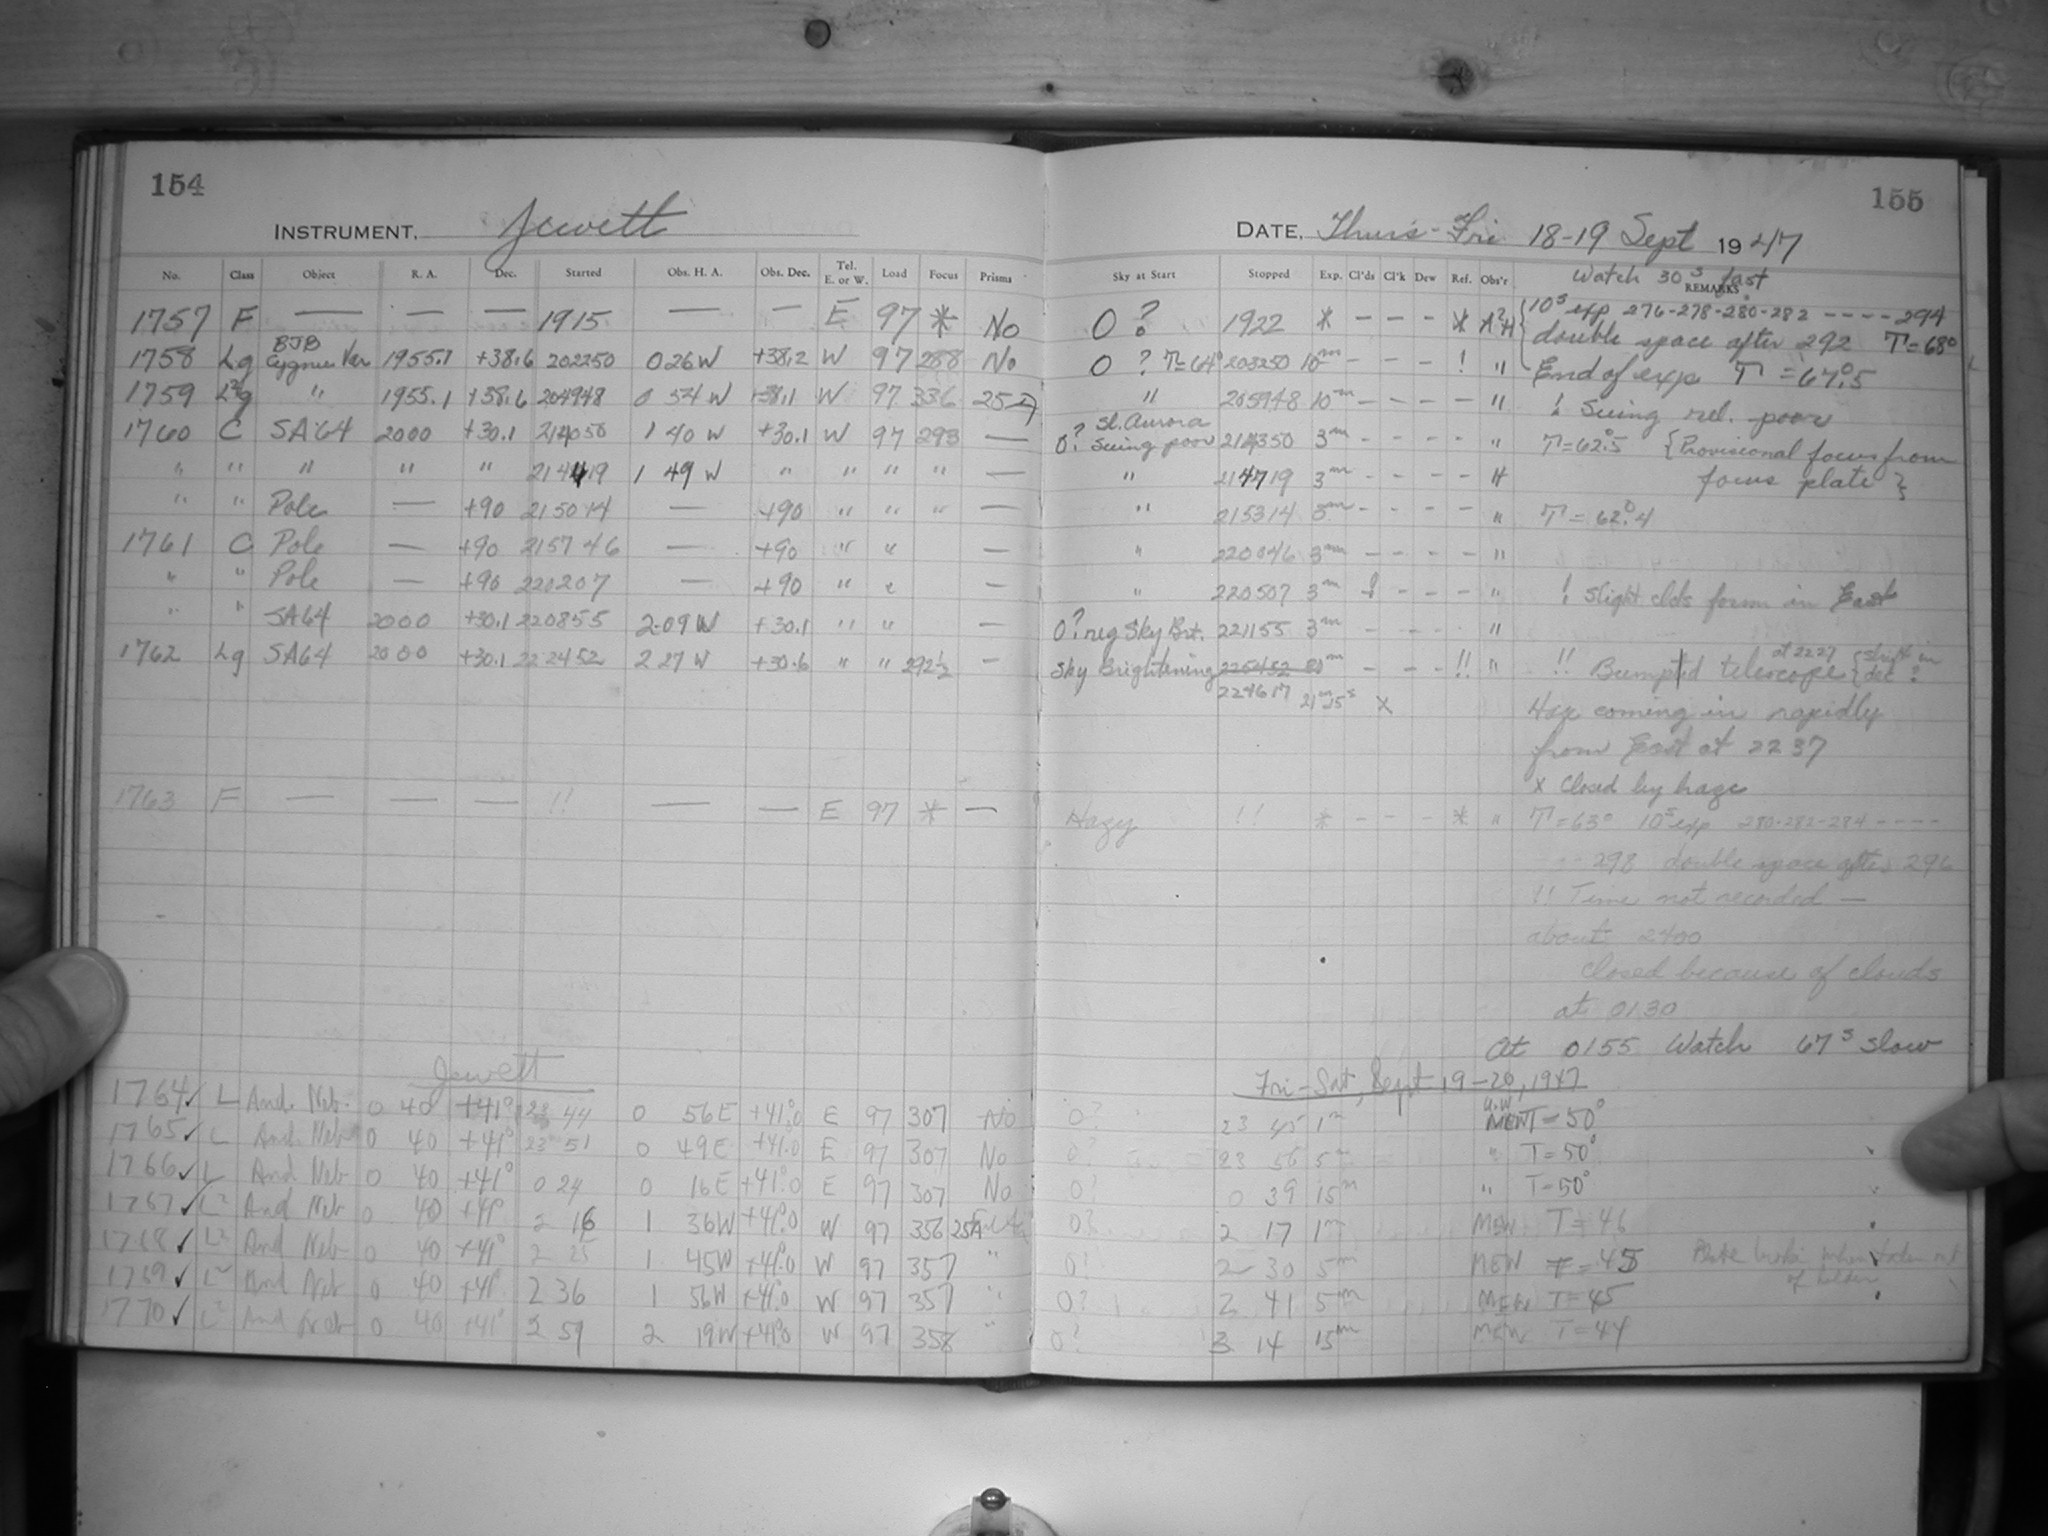 154
155
INSTRUMENT. Jewett
DATE. Thurs-Fri 18-19 Sept 1947
No. Class Object R. A. Dec. Started Obs. H. A. Obs. Dec. Tel. E. or W. Load Focus Prisms Sky at Start Stopped Exp. Cl'ds Cl'k Dew Ref. Obs'r REMARKS
Watch 30s fast
1757 F — — — 1915 — — E 97 * No 0? 1922 * - - - * { 10s exp 276-278-280-282 ---- 294
double space after 292 T=68°
1758 Lg BJB Cygnus Var 1955.1 +38.6 202250 0 26 W +38.2 W 97 288 No 0? T=64° 203250 10m - - - ! " End of exp T=67°.5
1759 L2g " 1955.1 +38.6 204948 0 54 W +38.1 W 97 336 25 " 205948 10m - - - - " ! Seeing rel. poor
1760 C SA64 2000 +30.1 214050 1 40 W +30.1 W 97 293 — 0? Sl. Aurora Seeing poor 214350 3m - - - - " T=62°.5 { Provisional focus from
" " " " " 214419 1 49 W " " " " — " 214719 3m - - - - H focus plate }
" " Pole — +90 215014 — +90 " " " — " 215314 3m - - - - " T=62°.4
1761 C Pole — +90 215746 — +90 " " — " 220046 3m - - - - "
" " Pole — +90 220207 — +90 " " — " 220507 3m ! - - - " ! Slight clds form in East
" " SA64 2000 +30.1 220855 2 09 W +30.1 " " — 0? reg Sky Brt. 221155 3m - - - "
1762 Lg SA64 2000 +30.1 222452 2 27 W +30.6 " " 292½ — Sky Brightening 225452 - - - !! " !! Bumped telescope at 2227 { shift in dec ?
224617 21m 25s x Haze coming in rapidly
from East at 2237
x Closed by haze
1763 F — — — !! — — E 97 * — Hazy !! * - - - * " T=63° 10s exp 280-282-284 ----
-- 298 double space after 296
!! Time not recorded —
about 2400
closed because of clouds
at 0130
At 0155 Watch 67s slow
Jewett
Fri-Sat, Sept 19-20, 1947
1764 ✓ L And. Neb. 0 40 +41° 23 44 0 56 E +41°.0 E 97 307 No 0? 23 45 1m MEW T=50°
1765 ✓ L And. Neb 0 40 +41° 23 51 0 49 E +41.0 E 97 307 No 0? 23 56 5m " T=50°
1766 ✓ L And Neb 0 40 +41° 0 24 0 16 E +41°.0 E 97 307 No 0? 0 39 15m " T=50°
1767 ✓ L2 And Neb 0 40 +41° 2 16 1 36 W +41°.0 W 97 356 25A 0? 2 17 1m MEW T=46
1768 ✓ L2 And Neb 0 40 +41° 2 25 1 45 W +41°.0 W 97 357 " 0? 2 30 5m MEW T=45 Plate broke when taken out of holder
1769 ✓ L2 And Neb 0 40 +41° 2 36 1 56 W +41°.0 W 97 357 " 0? 2 41 5m MEW T=45
1770 ✓ L2 And Neb 0 40 +41° 2 59 2 19 W +41°.0 W 97 358 " 0? 3 14 15m MEW T=44